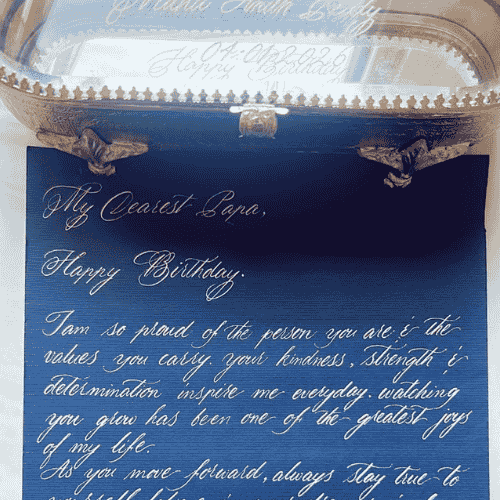 Happy Birthday
My Dearest Papa,
Happy Birthday.
I am so proud of the person you are & the
values you carry. your kindness, strength &
determination inspire me everyday. watching
you grow has been one of the greatest joys
of my life.
As you move forward, always stay true to